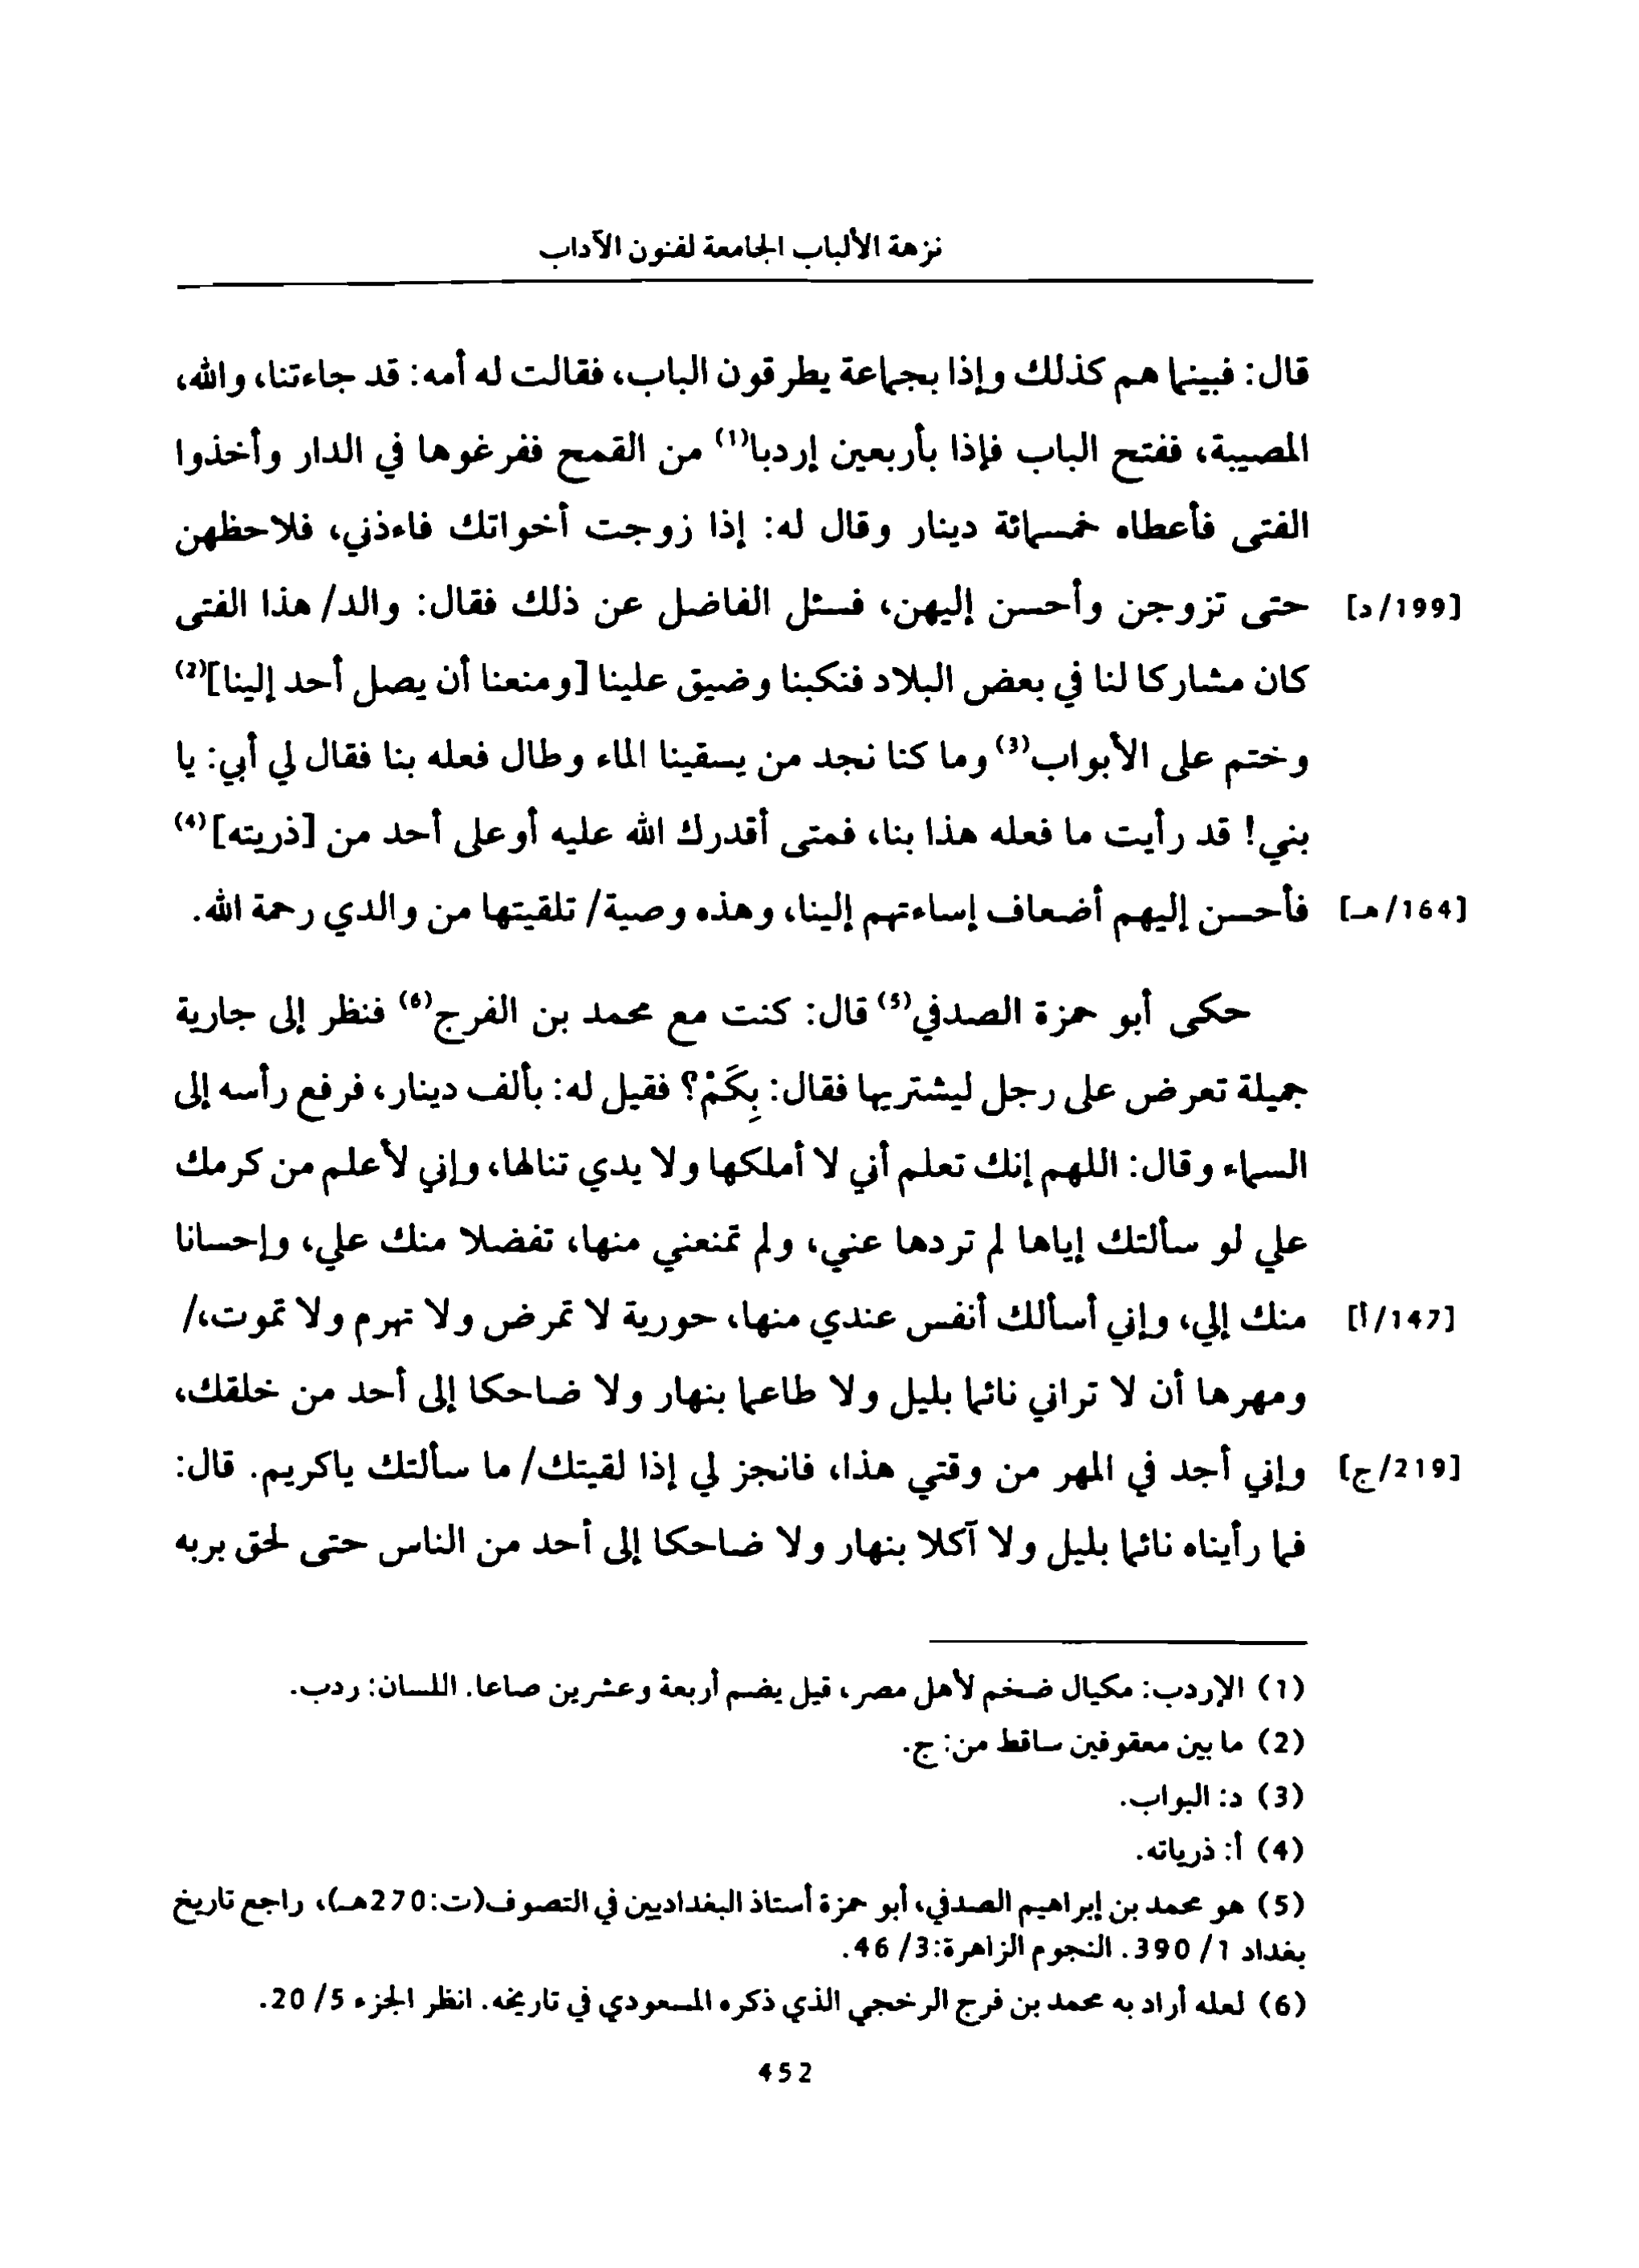 نزهة الألباب الجامعة لفنون الآداب
قال: فبينما هم كذلك وإذا بجماعة يطرقون الباب، فقالت له أمه: قد جاءتنا، والله،
المصيبة، ففتح الباب فإذا بأربعين إردبا(1) من القمح ففرغوها في الدار وأخذوا
الفتى فأعطاه خمسمائة دينار وقال له: إذا زوجت أخواتك فاءذني، فلاحظهن
[199/د] حتى تزوجن وأحسن إليهن، فسئل الفاضل عن ذلك فقال: والد/ هذا الفتى
كان مشاركا لنا في بعض البلاد فنكبنا وضيق علينا [ومنعنا أن يصل أحد إلينا](2)
وختم على الأبواب(3) وما كنا نجد من يسقينا الماء وطال فعله بنا فقال لي أبي: يا
بني! قد رأيت ما فعله هذا بنا، فمتى أقدرك الله عليه أوعلى أحد من [ذريته](4)
[164/هـ] فأحسن إليهم أضعاف إساءتهم إلينا، وهذه وصية/ تلقيتها من والدي رحمة الله.
حكى أبو حمزة الصدفي(5) قال: كنت مع محمد بن الفرج(6) فنظر إلى جارية
جميلة تعرض على رجل ليشتريها فقال: بِكَمْ؟ فقيل له: بألف دينار، فرفع رأسه إلى
السماء وقال: اللهم إنك تعلم أني لا أملكها ولا يدي تنالها، وإني لأعلم من كرمك
علي لو سألتك إياها لم تردها عني، ولم تمنعني منها، تفضلا منك علي، وإحسانا
[147/أ] منك إلي، وإني أسألك أنفس عندي منها، حورية لا تمرض ولا تهرم ولا تموت،/
ومهرها أن لا تراني نائما بليل ولا طاعما بنهار ولا ضاحكا إلى أحد من خلقك،
[219/ج] وإني أجد في المهر من وقتي هذا، فانجز لي إذا لقيتك/ ما سألتك ياكريم. قال:
فما رأيناه نائما بليل ولا آكلا بنهار ولا ضاحكا إلى أحد من الناس حتى لحق بربه
(1) الإردب: مكيال ضخم لأهل مصر، قيل يضم أربعة وعشرين صاعا. اللسان: ردب.
(2) ما بين معقوفين ساقط من: ج.
(3) د: البواب.
(4) أ: ذرياته.
(5) هو محمد بن إبراهيم الصدفي، أبو حمزة أستاذ البغداديين في التصوف(ت:270هـ)، راجع تاريخ
بغداد 1/ 390. النجوم الزاهرة:3/ 46.
(6) لعله أراد به محمد بن فرج الرخجي الذي ذكره المسعودي في تاريخه. انظر الجزء 5/ 20.
452